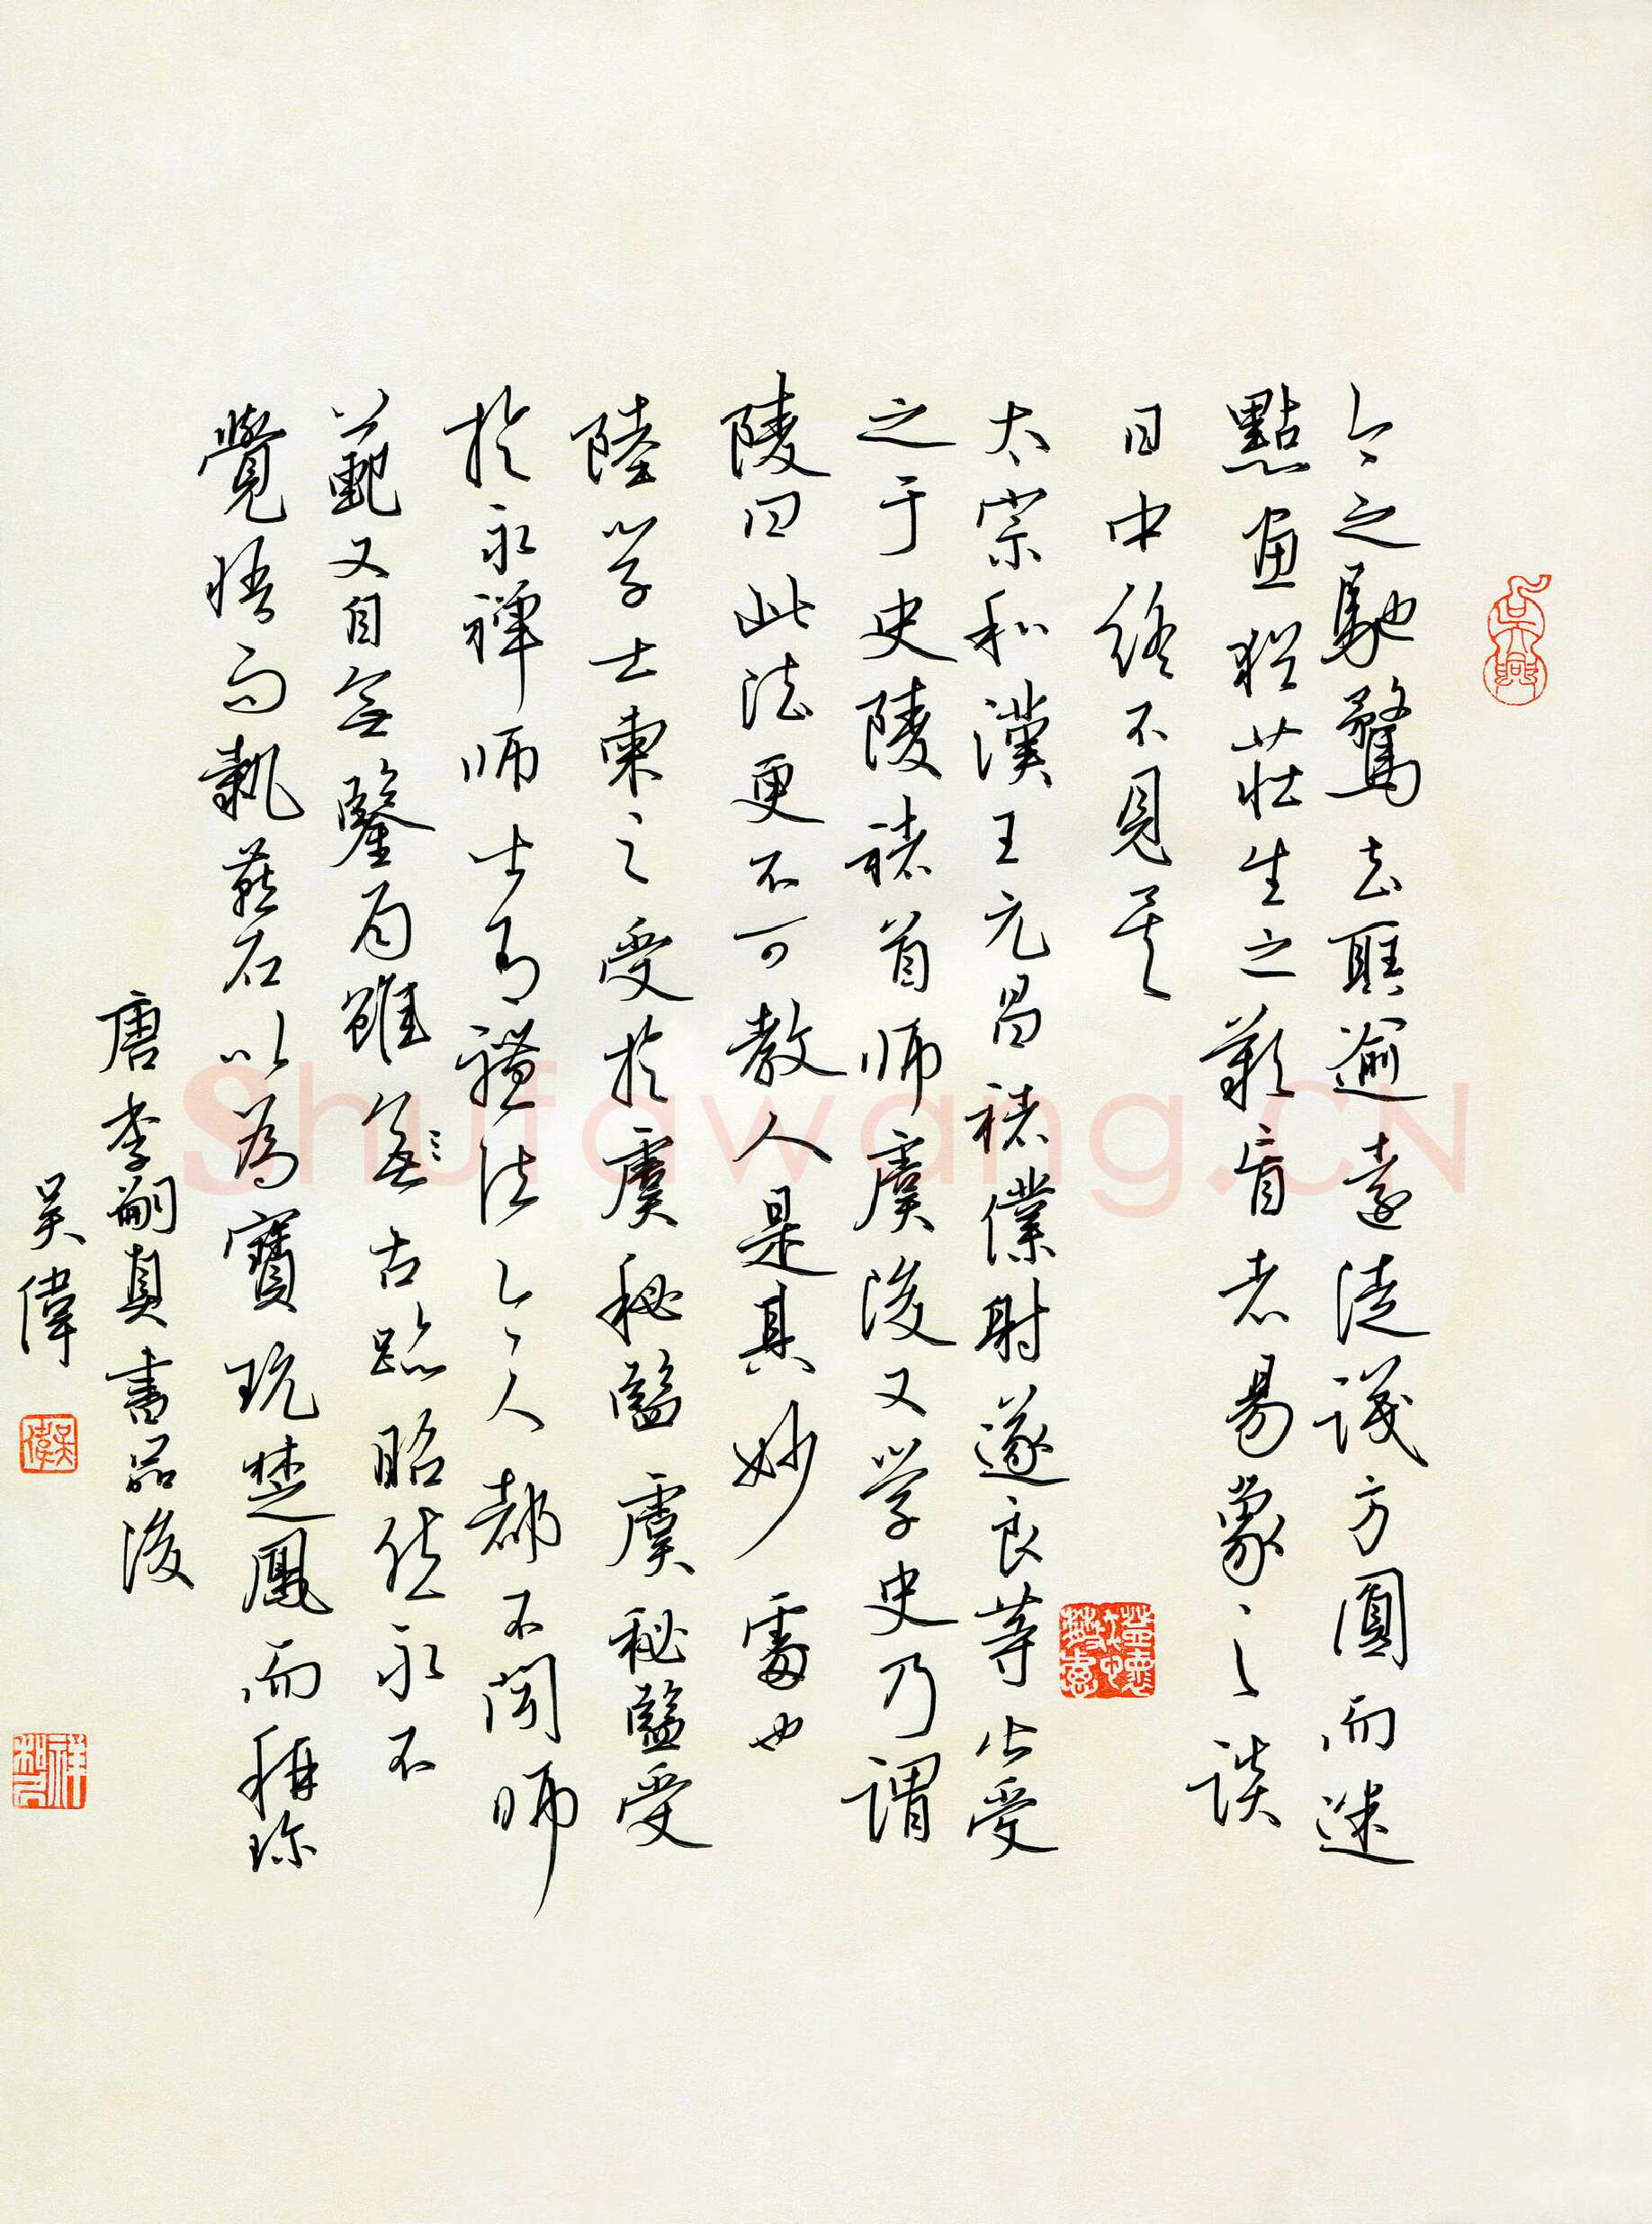 今之馳騖去聖逾遠徒識方圓而迷
點畫猶莊生之歎盲者易象之談
日中終不見矣
太宗和漢王元昌褚僕射遂良等皆受
之于史陵褚首師虞後又學史乃謂
陵曰此法更不可教人是其妙處也
陸學士柬之受於虞秘監虞秘監受
於永禪師皆有體法今人都不聞師
範又自無鑒局雖無古跡昭然永不
覺悟而執燕石以為寶玩楚鳳而稱珍
唐李嗣真書品後
吳偉
Shufawang.CN